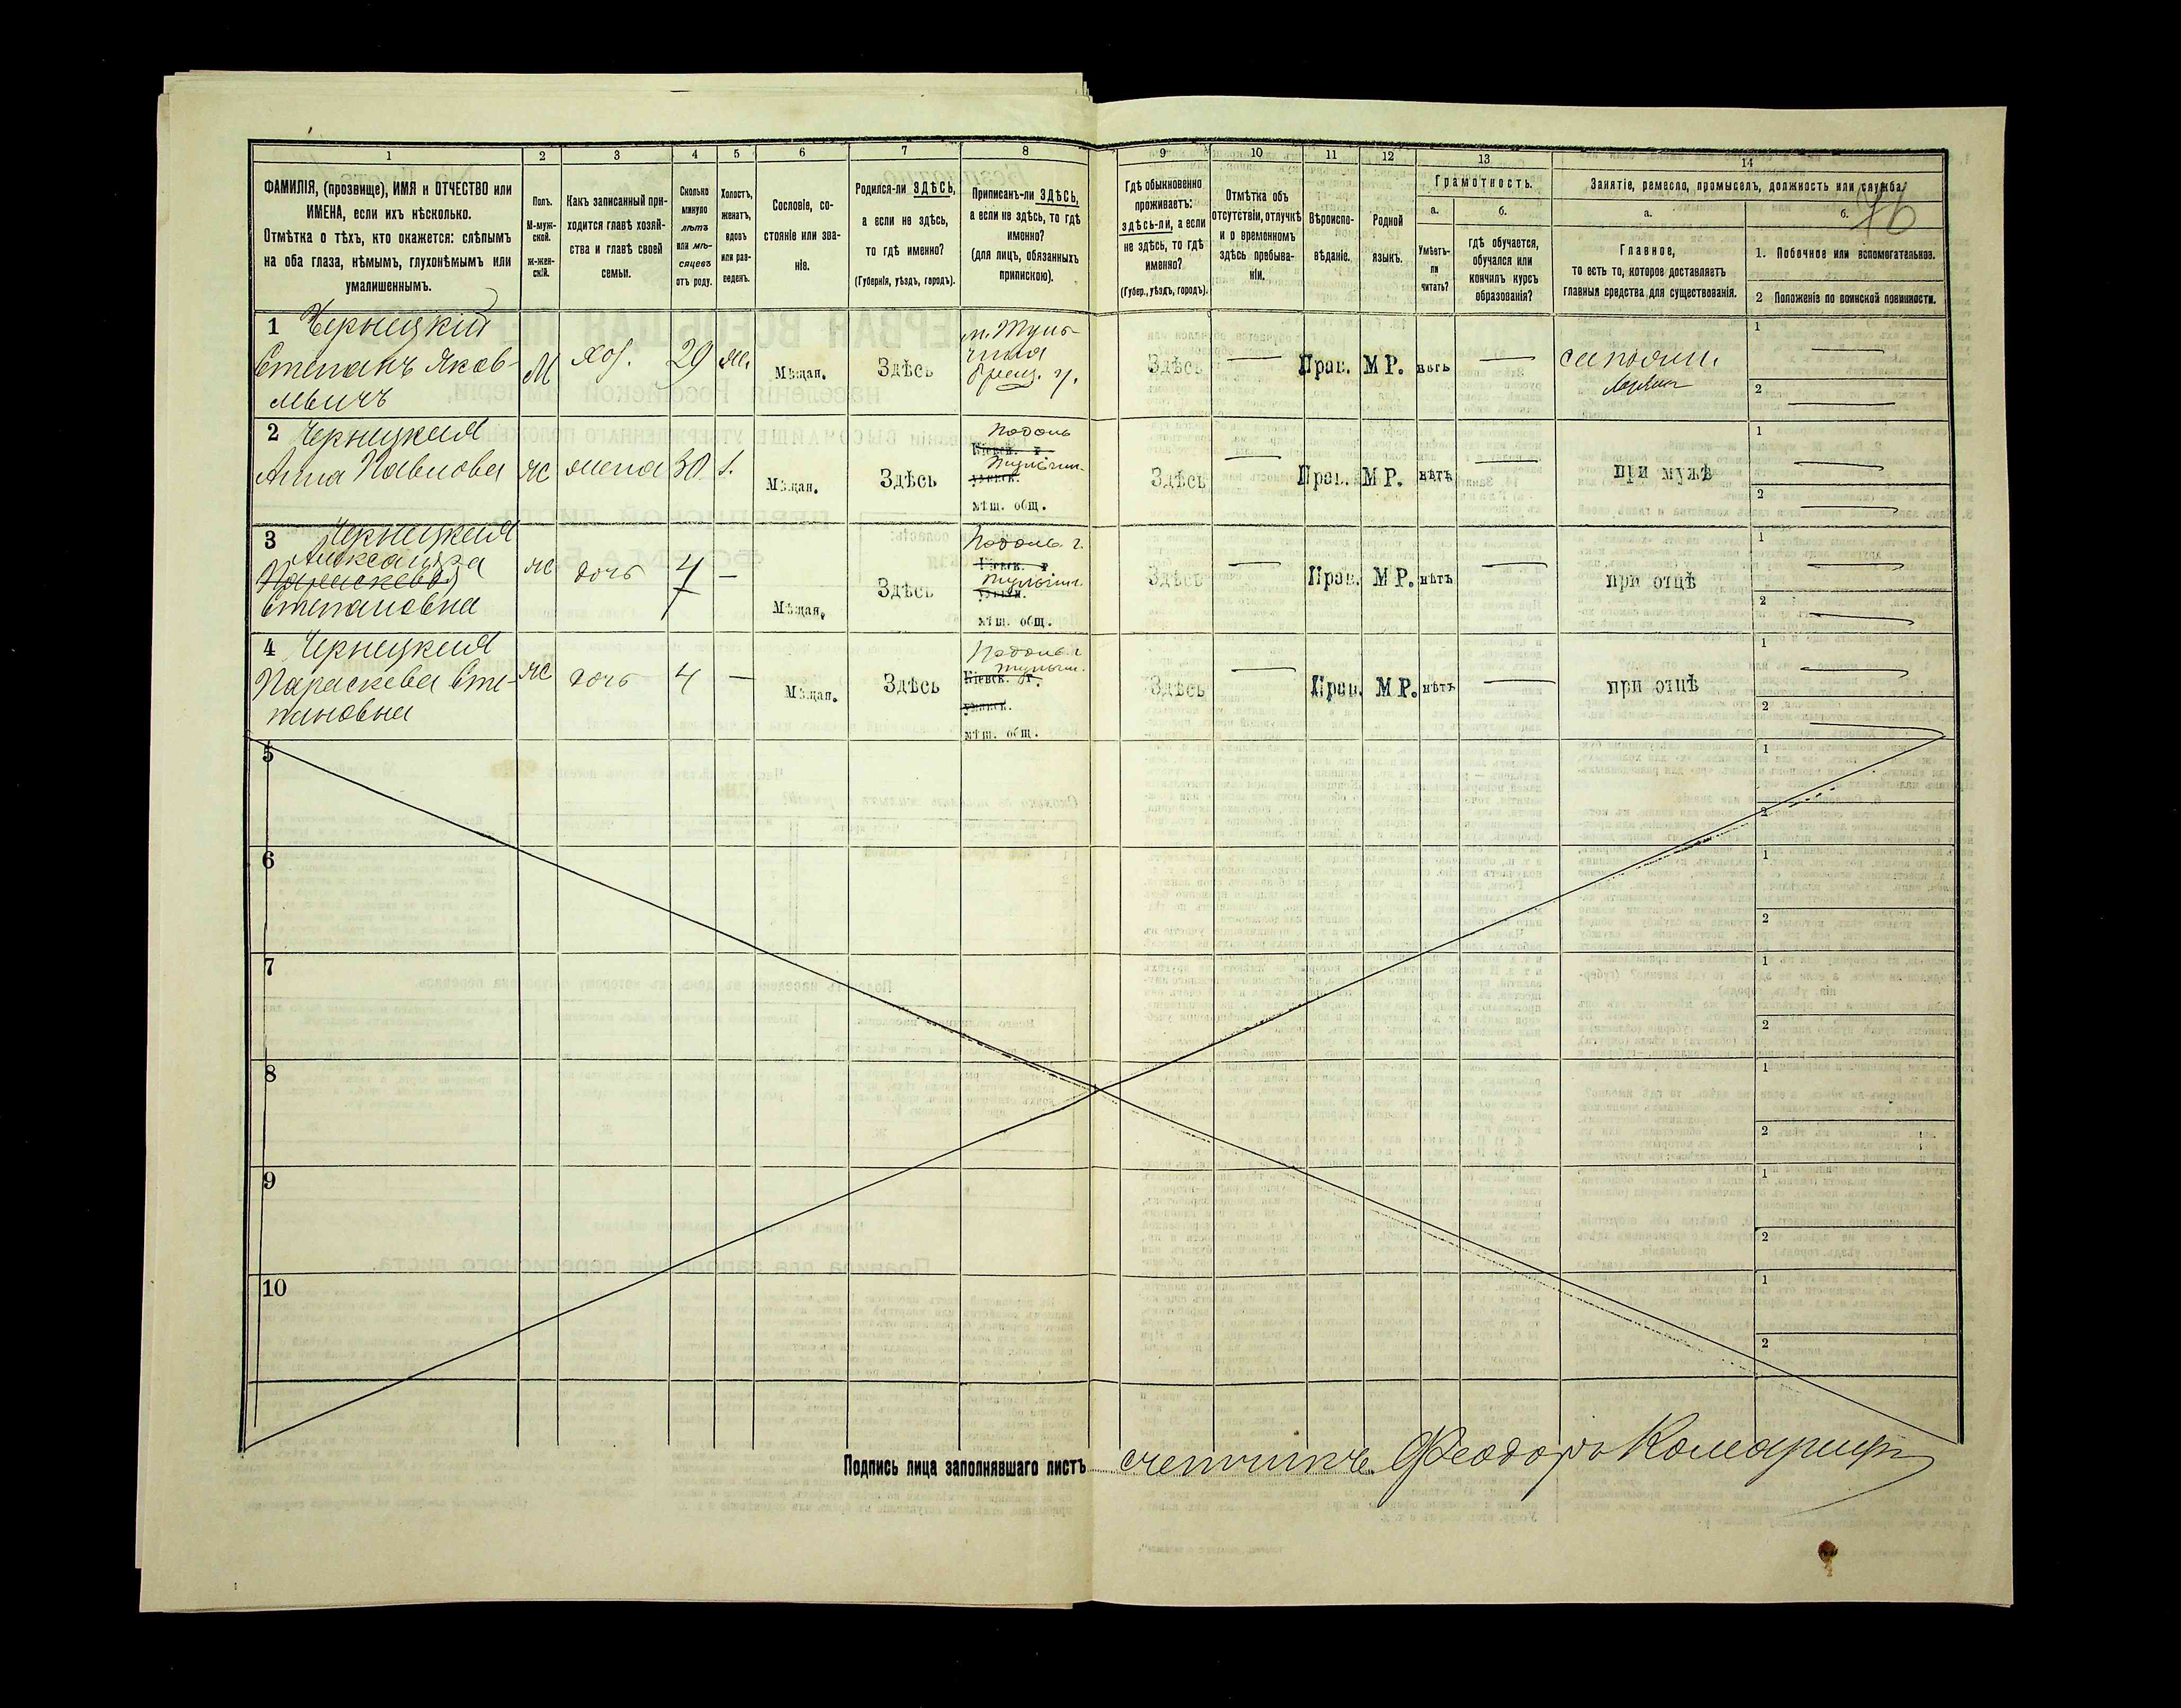 1 2 3 4 5 6 7 8 9 10 11 12 13 14
ФАМИЛІЯ, (прозвище), ИМЯ и ОТЧЕСТВО или
ИМЕНА, если ихъ нѣсколько.
Отмѣтка о тѣхъ, кто окажется: слѣпымъ
на оба глаза, нѣмымъ, глухонѣмымъ или
умалишеннымъ.
Полъ.
М-муж-
ской.
ж-жен-
скій.
Какъ записанный при-
ходится главѣ хозяй-
ства и главѣ своей
семьи.
Сколько
минуло
лѣтъ
или мѣ-
сяцевъ
отъ роду.
Холостъ,
женатъ,
вдовъ
или раз-
веденъ.
Сословіе, со-
стояніе или зва-
ніе.
Родился-ли ЗДѢСЬ,
а если не здѣсь,
то гдѣ именно?
(Губернія, уѣздъ, городъ).
Приписанъ-ли ЗДѢСЬ,
а если не здѣсь, то гдѣ
именно?
(для лицъ, обязанныхъ
припискою).
Гдѣ обыкновенно
проживаетъ:
здѣсь-ли, а если
не здѣсь, то гдѣ
именно?
(Губер., уѣздъ, городъ).
Отмѣтка объ
отсутствіи, отлучкѣ
и о временномъ
здѣсь пребыва-
ніи.
Вѣроиспо-
вѣданіе.
Родной
языкъ.
Грамотность.
а.
Умѣетъ-
ли
читать?
б.
гдѣ обучается,
обучался или
кончилъ курсъ
образованія?
Занятіе, ремесло, промыселъ, должность или служба.
76
а.
Главное,
то есть то, которое доставляетъ
главныя средства для существованія.
б.
1. Побочное или вспомогательное.
2 Положеніе по воинской повинности.
1 Черницкій
Степанъ Яков-
льевичъ
М Хоз. 29 ж. Мѣщан. Здѣсь
м. Туль-
чина
Здѣсь — Прав. М Р. нѣтъ —
сапожн.
1 —
2 —
2 Черницкая
Анна Павлова
Ж жена 30 з. Мѣщан. Здѣсь
Подоль
Кіевск. г.
Тульчин.
уманск.
мѣщ. общ.
Здѣсь — Прав. М Р. нѣтъ — при мужѣ
1 —
2 —
3 Черницкая
Александра
Параскева
Степановна
ж дочь 7 — Мѣщан. Здѣсь
Подоль. г.
Кіевск. г
Тульчин.
уманск.
мѣщ. общ.
Здѣсь — Прав. М Р. нѣтъ — при отцѣ
1 —
2 —
4 Черницкая
Параскева Сте-
пановна
ж дочь 4 — Мѣщан. Здѣсь
Подоль. г
Тульчин.
Кіевск. г.
уманск.
мѣщ. общ.
Здѣсь — Прав. М Р. нѣтъ — при отцѣ
1 —
2 —
5 1
2
6 1
2
7 1
2
8 1
2
9 1
2
10 1
2
Подпись лица заполнявшаго листъ счетчикъ Феодоръ